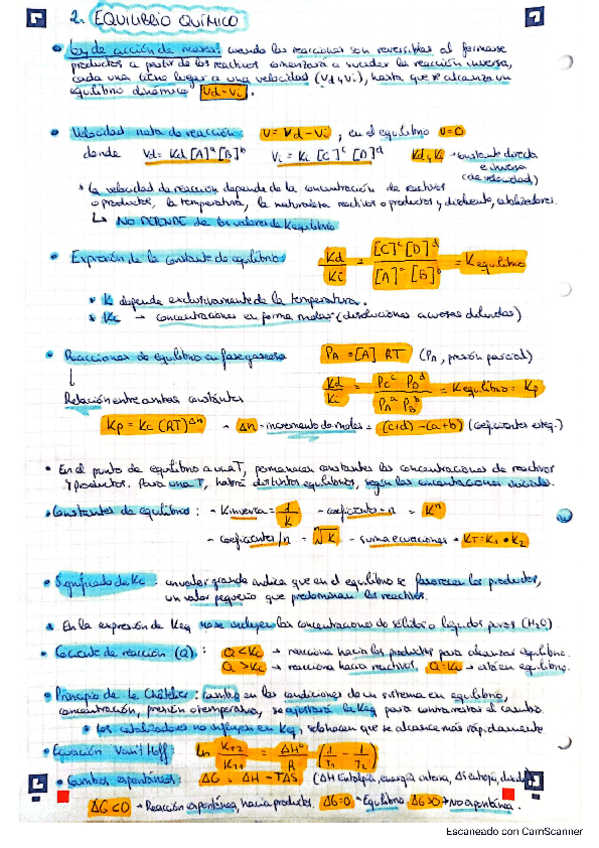 2. EQUILIBRIO QUÍMICO
• Ley de acción de masas: cuando las reacciones son reversibles al formarse
productos a partir de los reactivos comenzará a suceder la reacción inversa,
cada una tiene lugar a una velocidad (Vd y Vi), hasta que se alcanza un
equilibrio dinámico Vd = Vi.
• Velocidad neta de reacción: V = Vd - Vi, en el equilibrio V=0
donde Vd = Kd [A]^a [B]^b Vi = Ki [C]^c [D]^d Kd y Ki → constante directa
e inversa
(de velocidad)
* la velocidad de reacción depende de la concentración de reactivos
o productos, la temperatura, la naturaleza reactivos o productos y disolvente, catalizadores.
↳ NO DEPENDE de los valores de K equilibrio
• Expresión de la constante de equilibrio: Kd/Ki = [C]^c [D]^d / [A]^a [B]^b = K equilibrio
* K depende exclusivamente de la temperatura.
* Kc → concentraciones en forma molar (disoluciones acuosas diluidas)
• Reacciones de equilibrio en fase gaseosa PA = [A] RT (PA, presión parcial)
↓
Relación entre ambas constantes Kd/Ki = Pc^c PD^d / PA^a PB^b = K equilibrio = Kp
Kp = Kc (RT)^Δn → Δn = incremento de moles = (c+d) - (a+b) (coeficientes esteq.)
• En el punto de equilibrio a una T, permanecen constantes las concentraciones de reactivos
y productos. Para una T, habrá distintos equilibrios, según las concentraciones iniciales.
• Constantes de equilibrio: - K inversa = 1/K - coeficientes · n = K^n
- coeficientes/n = ⁿ√K - suma ecuaciones → KT = K1 • K2
• Significado de Kc: un valor grande indica que en el equilibrio se favorecen los productos,
un valor pequeño que predominan los reactivos.
* En la expresión de Keq no se incluyen las concentraciones de sólidos o líquidos puros (H2O).
• Cociente de reacción (Q): Q < Kc → reacciona hacia los productos para alcanzar equilibrio.
Q > Kc → reacciona hacia reactivos. Q = Kc → está en equilibrio.
• Principio de Le Châtelier: cambio en las condiciones de un sistema en equilibrio,
concentración, presión o temperatura, se ajustará la Keq para contrarrestar el cambio.
* Los catalizadores no influyen en Keq, solo hacen que se alcance más rápidamente
• Ecuación Van't Hoff: ln KT2/KT1 = ΔH°/R (1/T1 - 1/T2)
• Cambios espontáneos: ΔG = ΔH - TΔS (ΔH entalpía, energía interna, ΔS entropía,
ΔG<0 → Reacción espontánea, hacia productos. ΔG=0 → Equilibrio ΔG>0 → No espontánea.
Escaneado con CamScanner